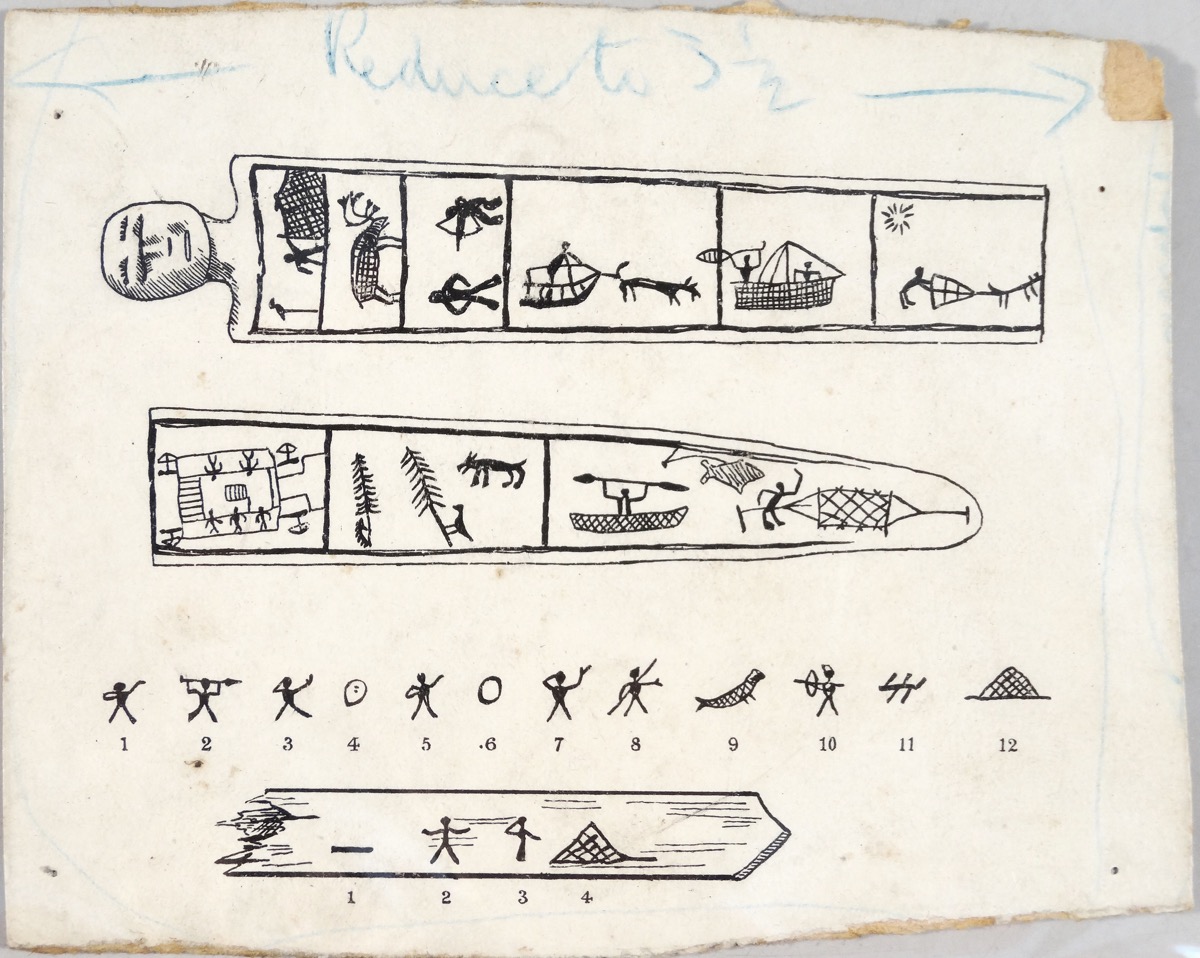 Reduce to 5 1/2
1 2 3 4 5 .6 7 8 9 10 11 12
1 2 3 4